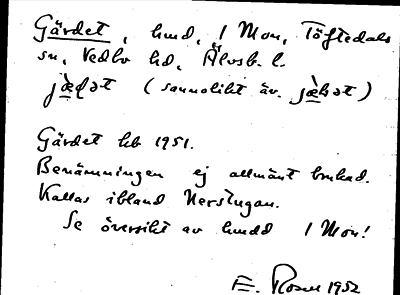 Gärdet, hmd, i Mon, Töftedals
sn, Vedbo hd, Älvsb. l.
(sannolikt äv.
Gärdet kb 1951.
Benämningen ej allmänt brukad.
Kallas ibland Nerstugan.
Se översikt av hmdd i Mon!
E. Rosen 1952